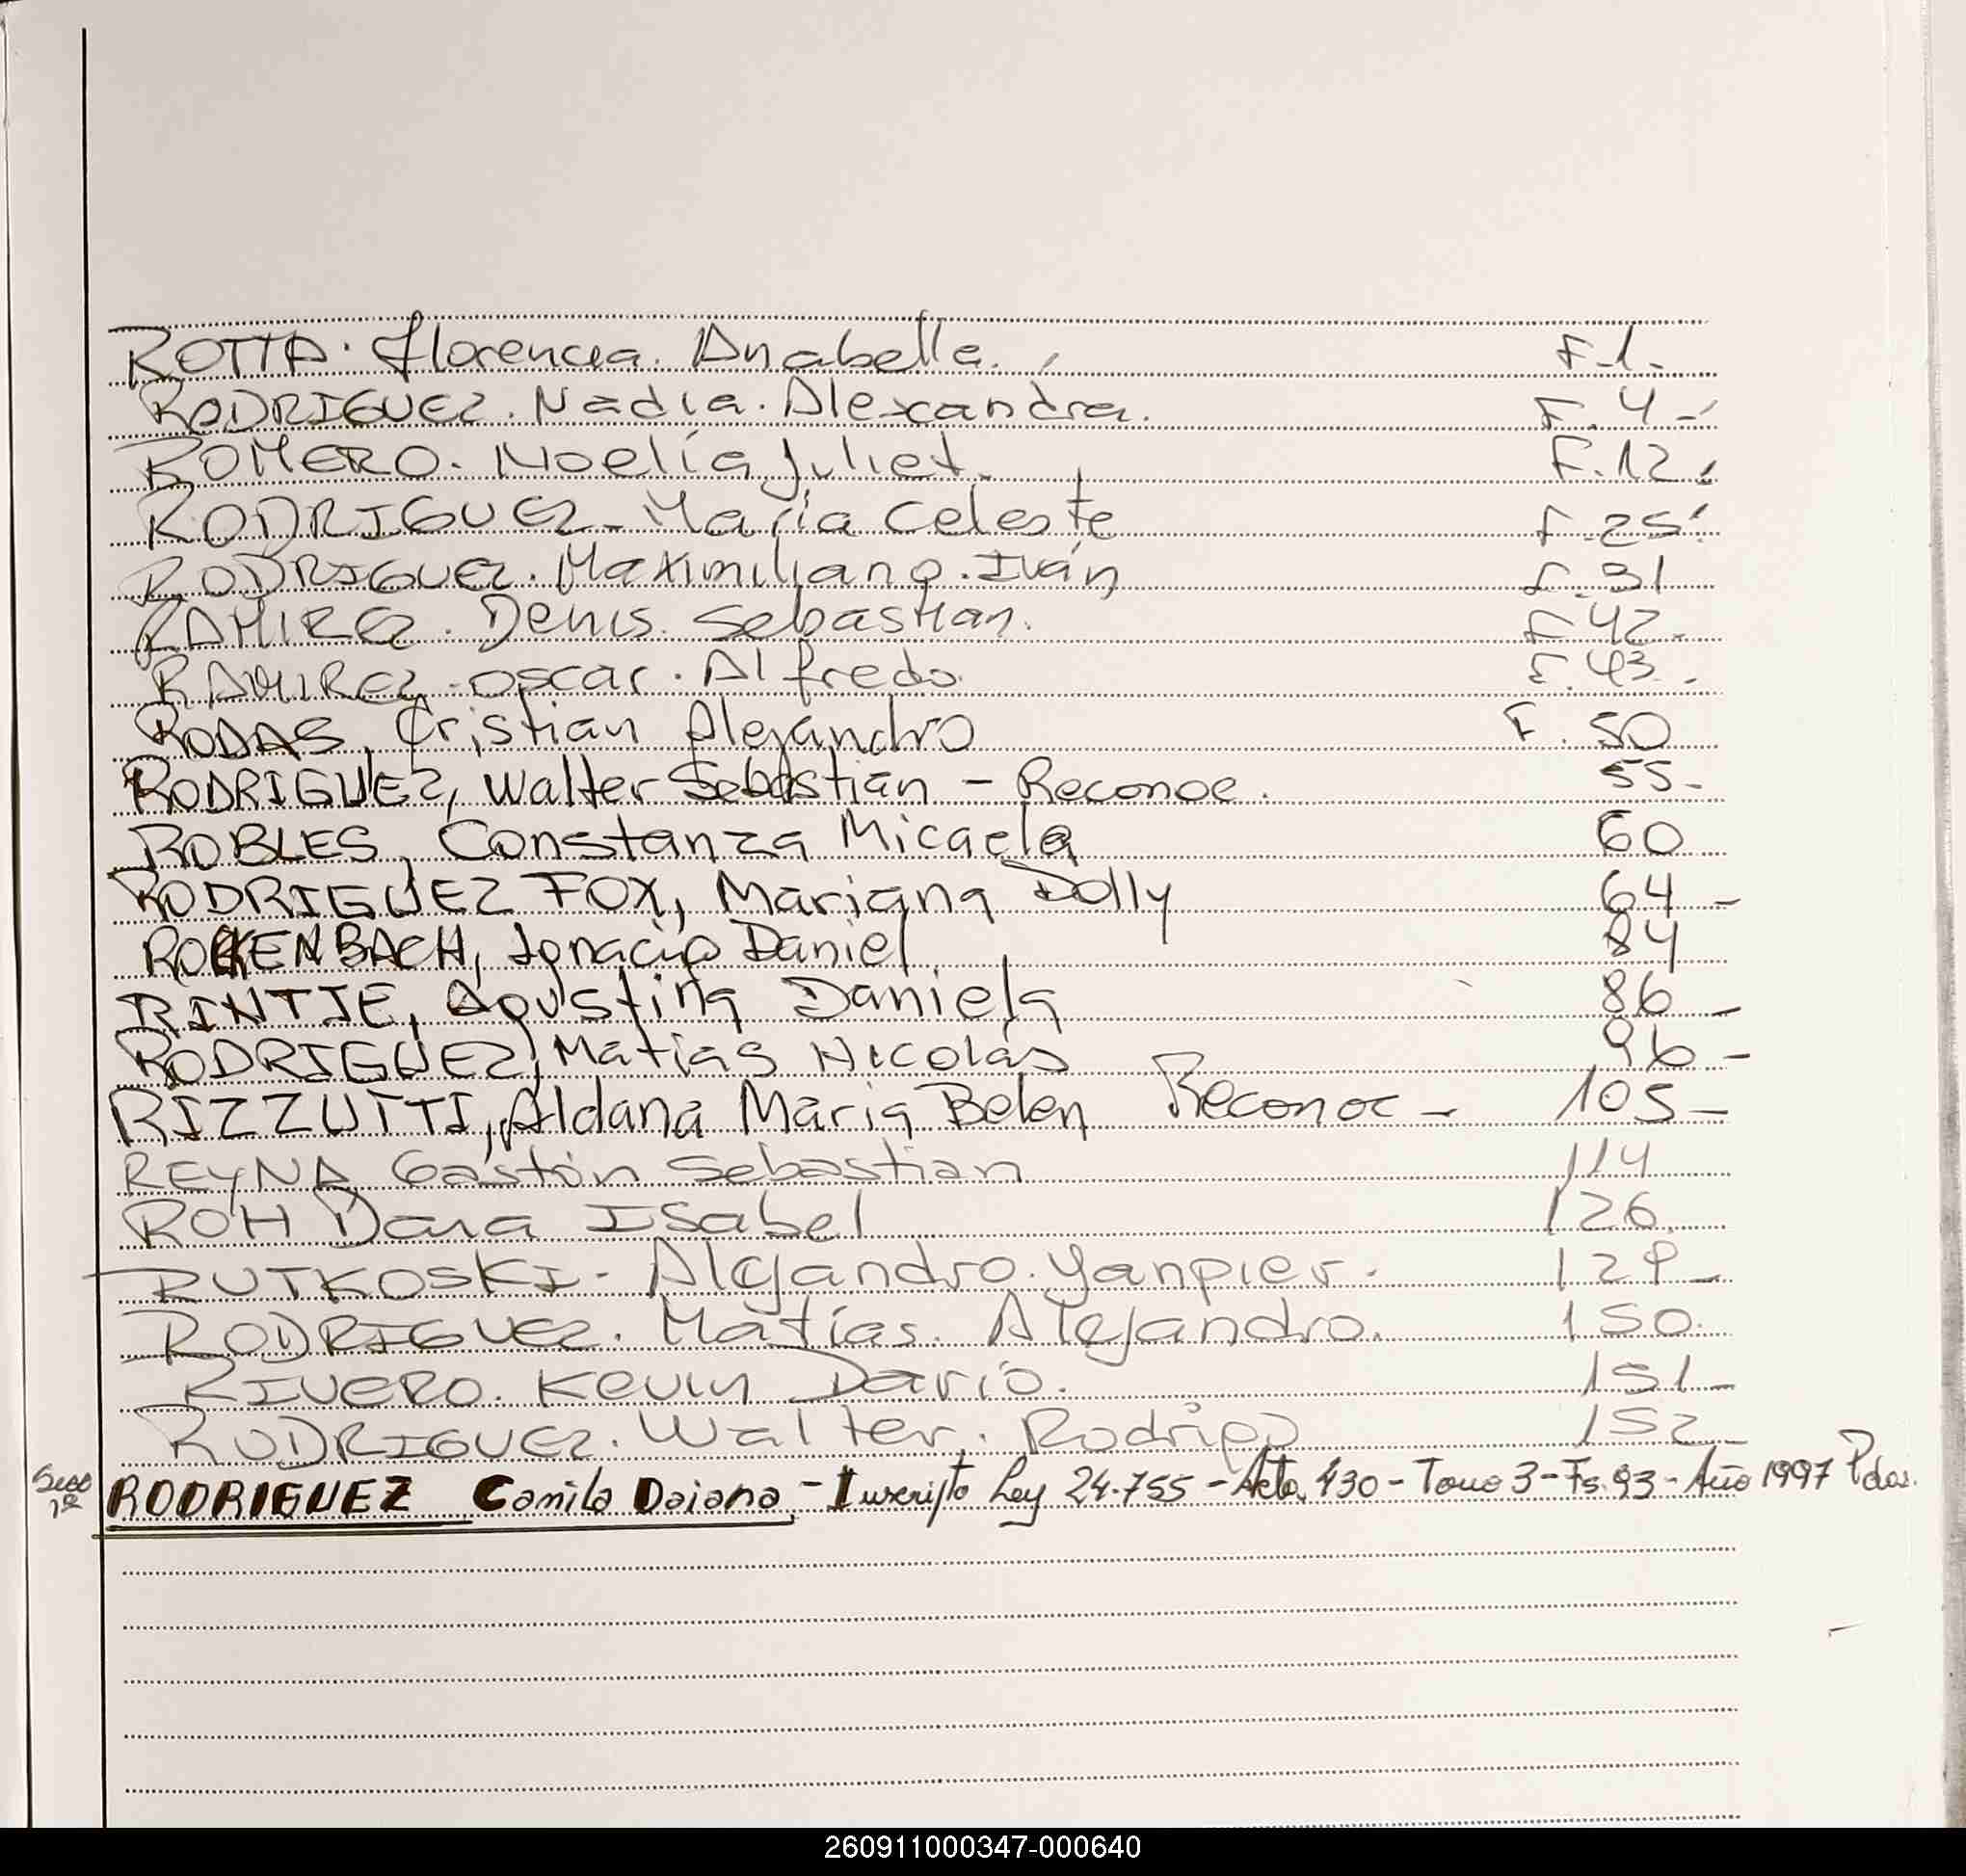 ROTTA. Florencia. Anabella. F.1.
RODRIGUEZ. Nadia. Alexandra. F. 4-
ROMERO. Noelia Juliet. F.12.
RODRIGUEZ- María Celeste F.25.
RODRIGUEZ. Maximiliano. Iván F.31
RAMIREZ. Denis. Sebastian. F 42.
RAMIREZ. Oscar. Alfredo. F.43.
RODAS, Cristian Alejandro F. 50
RODRIGUEZ, Walter Sebastián - Reconoc. 55-
ROBLES, Constanza Micaela 60
RODRIGUEZ FOX, Mariana Dolly 64-
ROKENBACH, Ignacio Daniel 84
RINTJE, Agustina Daniela 86-
RODRIGUEZ, Matias Nicolás 96-
RIZZUTTI, Aldana Maria Belen Reconoc- 105-
REYNA Gastón Sebastian 114
ROH Dara Isabel 126.
RUTKOSKI- Alejandro. Yanpier. 129-
RODRIGUEZ. Matías. Alejandro. 150.
RIVERO. Kevin Darío. 151-
RODRIGUEZ. Walter. Rodrigo 152-
Secc 1ª RODRIGUEZ Camila Daiana - Inscripto Ley 24.755 - Acta 430 - Tomo 3 - Fs. 93 - Año 1997 Pdas.
260911000347-000640